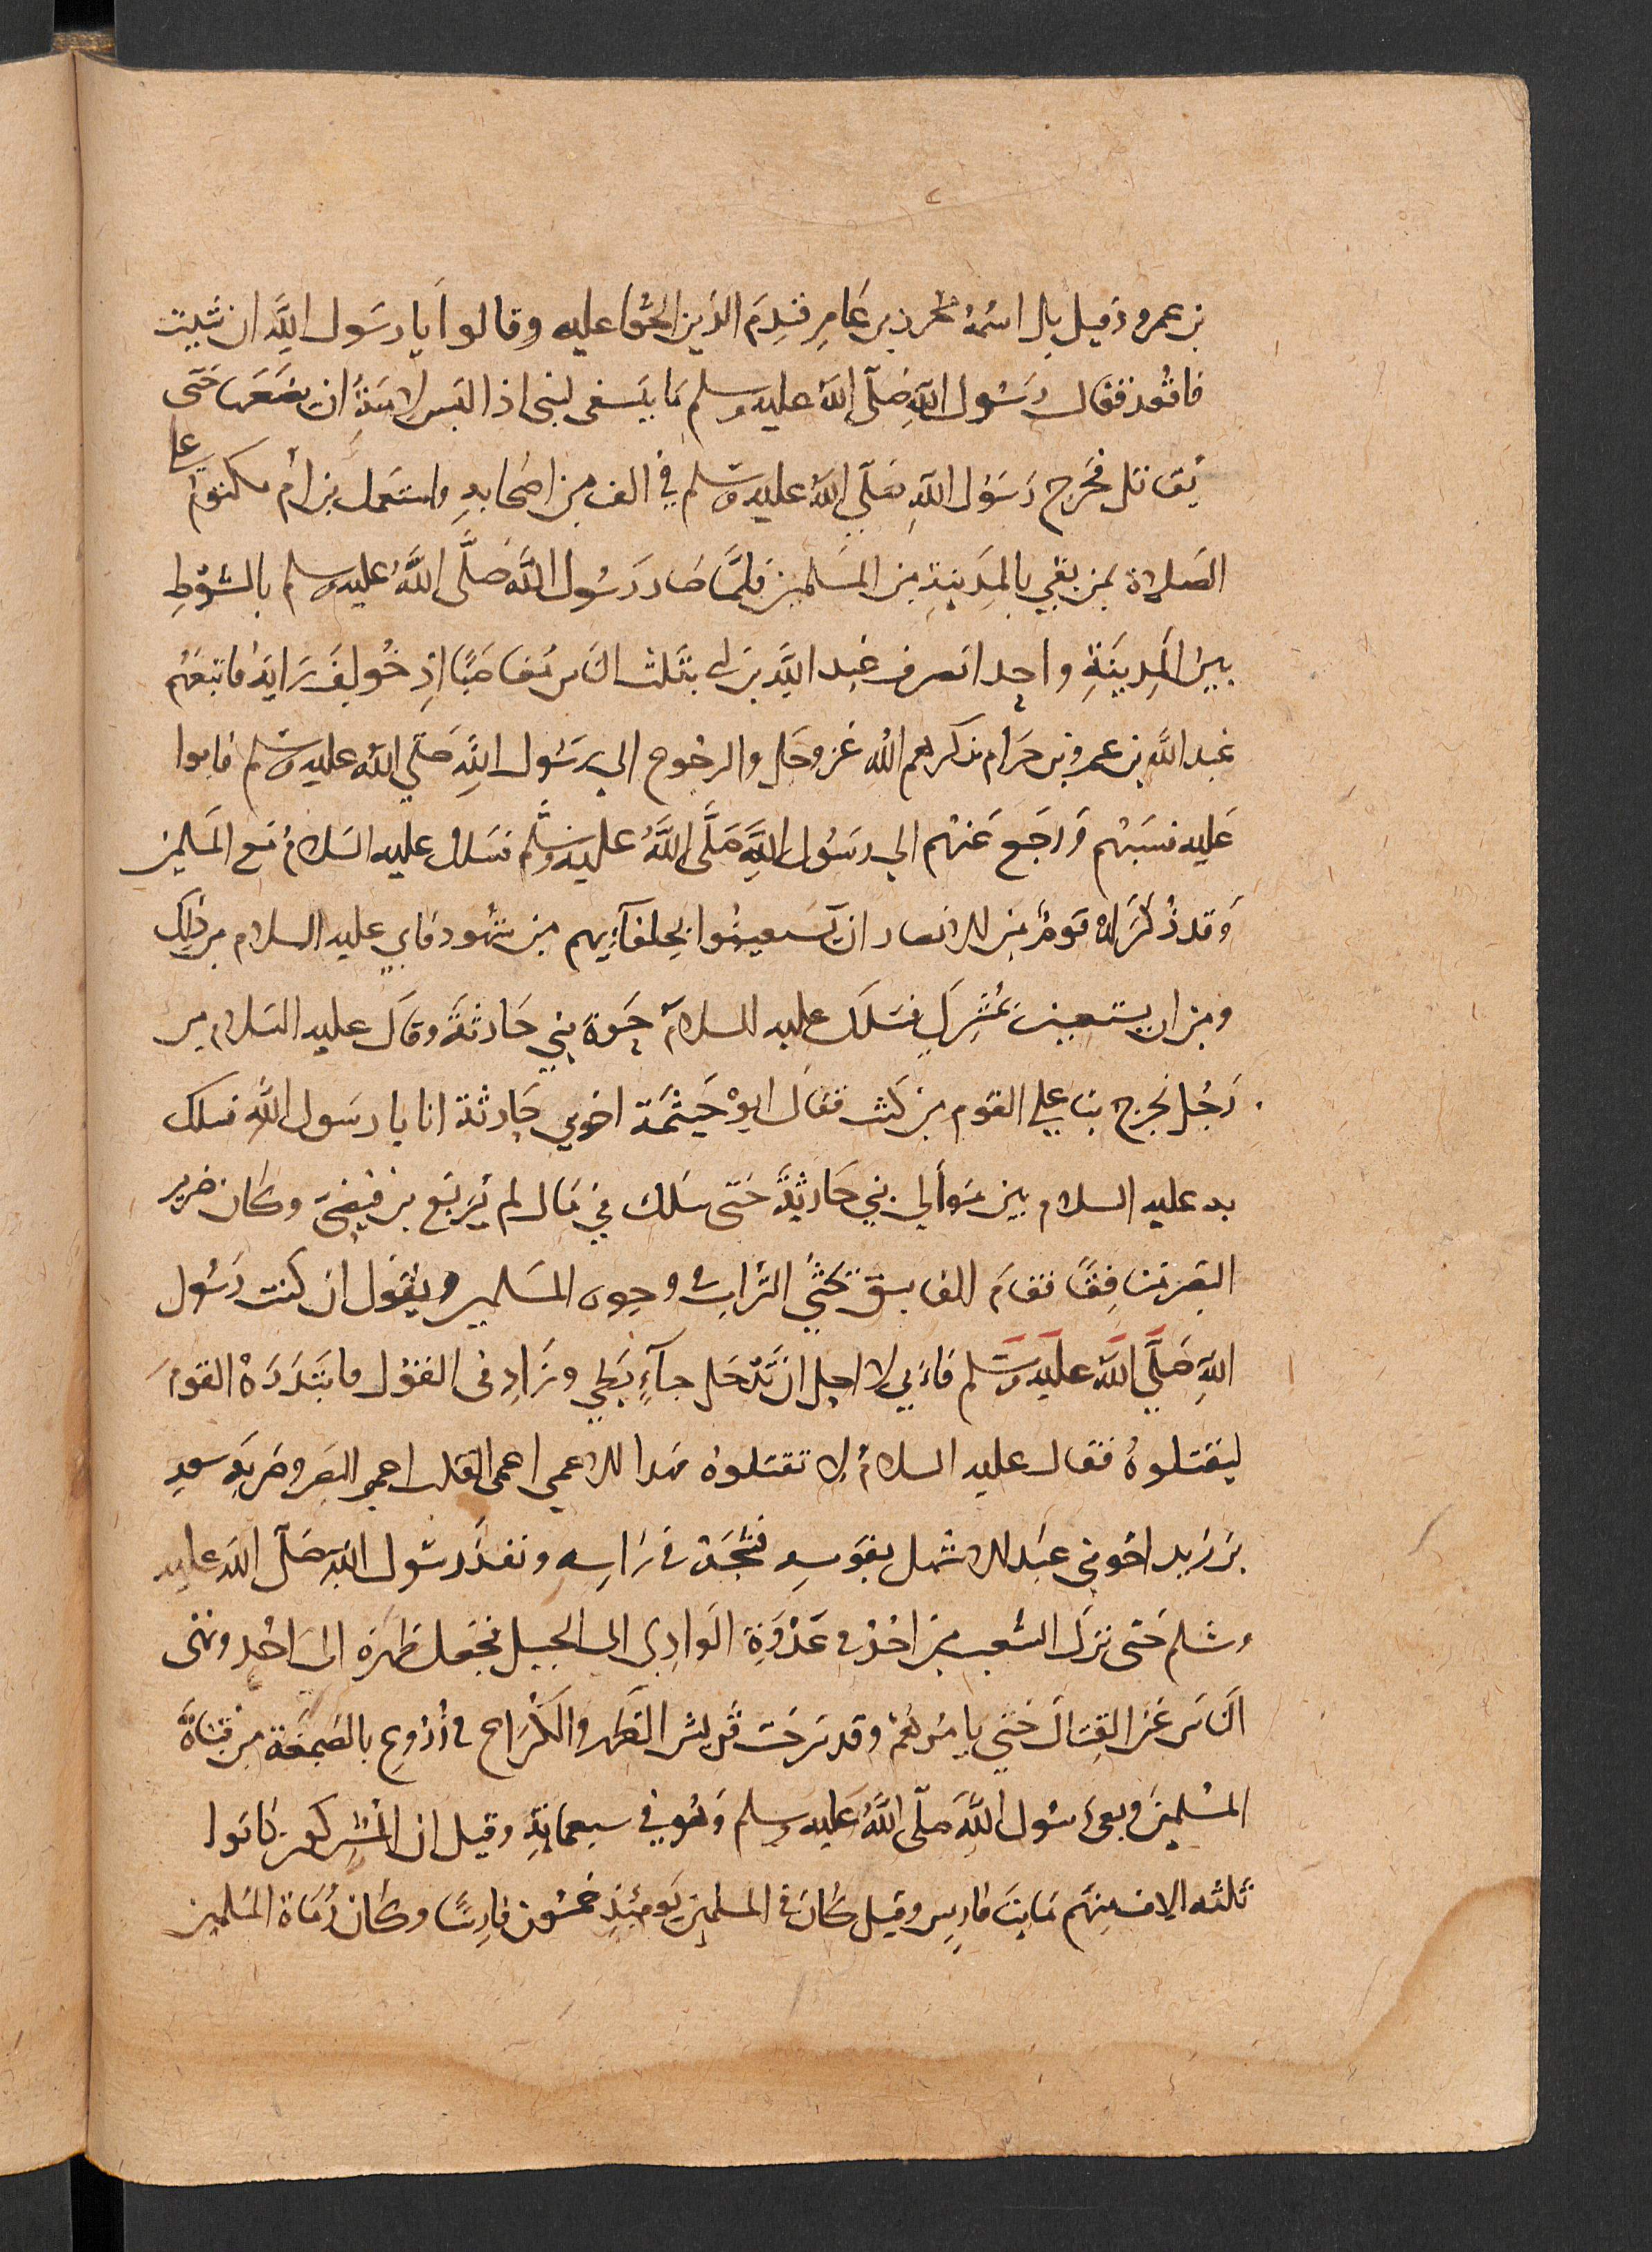 بن عمرو وقيل بل اسمه محرز بن عامر فندم الذين الحوا عليه وقالوا يا رسول الله ان شيت
فاقعد فقال رسول الله صلى الله عليه وسلم ما ينبغى لنبى اذا لبس لامته ان يضعها حتى
يقاتل فخرج رسول الله صلى الله عليه وسلم في الف من اصحابه واستعمل بن ام مكتوم على
الصلاة بمن بقي بالمدينة من المسلمين فلما صار رسول الله صلى الله عليه وسلم بالشوط
بين المدينة واحد انصرف عبد الله بن ابى بثلث الناس مغاضبا اذ خولف رايه فاتبعهم
عبد الله بن عمرو بن حرام يذكرهم الله عز وجل والرجوع الي رسول الله صلي الله عليه وسلم فابوا
عليه فسبهم ورجع عنهم الي رسول الله صلى الله عليه وسلم فسلك عليه السلام مع المسلمين
وقد ذكر له قوم من الانصار ان يستعينوا بحلفآيهم من يهود فابي عليه السلام من ذلك
ومن ان يستعين بمشرك فسلك عليه السلام حرة بني حارثة وقال عليه السلام من
رجل يخرج بنا علي القوم من كثب فقال ابو خيثمة اخو بني حارثة انا يا رسول الله فسلك
به عليه السلام بين موالي بني حارثة حتى سلك في مال لمربع بن قيضي وكان ضرير
البصر منافقا فقام الفاسق يحثي التراب في وجوه المسلمين ويقول ان كنت رسول
الله صلي الله عليه وسلم فاني لا احل ان تدخل حآيطي وزاد فى القول فابتدره القوم
ليقتلوه فقال عليه السلام لا تقتلوه فهذا الاعمي اعمى القلب اعمي البصر وضربه سعد
بن زيد اخو بني عبد الاشهل بقوسه فشجه في راسه ونفذ رسول الله صلى الله عليه
وسلم حتى نزل الشعب من احد في عدوة الوادي الى الجبل فجعل ظهره الى احد ونهى
الناس عن القتال حتي يامرهم وقد سرحت قريش الظهر والكراع في زروع بالصمغة من قناة
المسلمين وبعى رسول الله صلى الله عليه وسلم وهو في سبعماية وقيل ان المشركين كانوا
ثلثه الاف منهم مايتا فارس وقيل كان في المسلمين يومئذ خمسون فارسا وكان رماة المسلمين